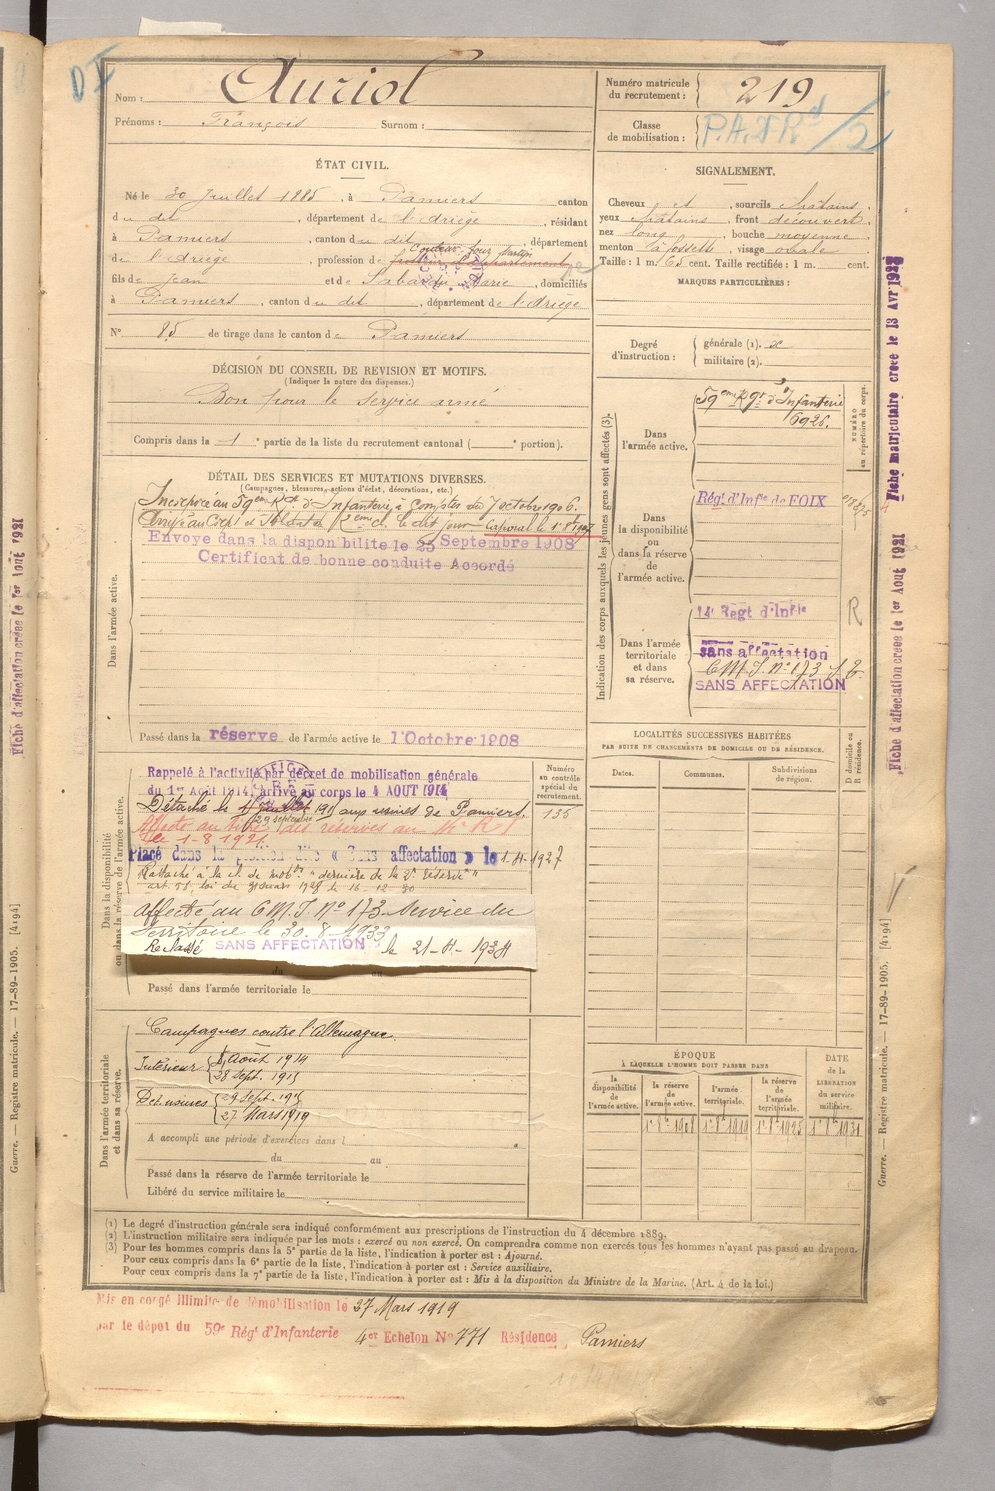 Nom : Auriol
Prénoms : François Surnom :
Numéro matricule du recrutement : 219
Classe de mobilisation : P.A.D.R
ÉTAT CIVIL.
Né le 30 Juillet 1885, à Pamiers canton
du dit, département de l'Ariège, résidant
à Pamiers, canton du dit, département
de l'Ariège, profession de
fils de Jean et de Marie, domiciliés
à Pamiers, canton du dit, département de l'Ariège
N° 85 de tirage dans le canton de Pamiers
DÉCISION DU CONSEIL DE REVISION ET MOTIFS.
(Indiquer la nature des dispenses.)
Bon pour le service armé
Compris dans la 1e partie de la liste du recrutement cantonal ( e portion).
SIGNALEMENT.
Cheveux et, sourcils chatains,
yeux chatains, front découvert,
nez long, bouche moyenne
menton à fossette, visage ovale
Taille : 1 m. 65 cent. Taille rectifiée : 1 m. cent.
MARQUES PARTICULIÈRES :
Degré d'instruction :
générale (1).
militaire (2).
DÉTAIL DES SERVICES ET MUTATIONS DIVERSES.
(Campagnes, blessures, actions d'éclat, décorations, etc.)
Dans l'armée active.
Incorporé au 59eme Rgt d'Infanterie, à compter du 7 octobre 1906.
Arrivé au Corps et Soldat de 2eme cl. le dit jour. Caporal le
Envoyé dans la disponibilité le 25 Septembre 1908
Certificat de bonne conduite Accordé
Passé dans la réserve de l'armée active le 1 Octobre 1908
Indication des corps auxquels les jeunes gens sont affectés (3).
NUMÉRO au répertoire du corps.
Dans l'armée active.
59eme Rgt d'Infanterie
6926.
Dans la disponibilité ou dans la réserve de l'armée active.
Régt d'Infie de FOIX
Dans l'armée territoriale et dans sa réserve.
14e Regt d'Infie
R
sans affectation
C.M.I. N° 173
SANS AFFECTATION
Dans la disponibilité ou dans la réserve de l'armée active.
Numéro au contrôle spécial du recrutement.
135
Rappelé à l'activité par décret de mobilisation générale
du 1er Août 1914, arrivé au corps le 4 AOUT 1914
Détaché le 29 septembre aux usines de Pamiers.
Affecté au titre des réserves au 14e R I
le 1-8 1921
Placé dans la position dite « Sans affectation » le 1.4.1927
Rattaché à la cl. de mobon "dernière de la 2e réserve"
art. 58, loi du 31 mars 1928 le 16-12-30
affecté au C.M.I. N° 173 Service du
Territoire le 30.8-1933
Reclassé SANS AFFECTATION le 21-4-1934
du au
Passé dans l'armée territoriale le
Dans l'armée territoriale et dans sa réserve.
Campagnes contre l'Allemagne.
Intérieur { 4 Août 1914
28 sept. 1915
Det. usines { 29 sept. 1915
27 Mars 1919
A accompli une période d'exercices dans l
du au
Passé dans la réserve de l'armée territoriale le
Libéré du service militaire le
LOCALITÉS SUCCESSIVES HABITÉES
PAR SUITE DE CHANGEMENTS DE DOMICILE OU DE RÉSIDENCE.
Dates. Communes. Subdivisions de région. D domicile ou R résidence.
ÉPOQUE
À LAQUELLE L'HOMME DOIT PASSER DANS
DATE de la LIBÉRATION du service militaire.
la disponibilité de l'armée active. la réserve de l'armée active. l'armée territoriale. la réserve de l'armée territoriale.
1er 8bre 1908 1er 8bre 1919 1er 8bre 1925 1er 8bre 1931
(1) Le degré d'instruction générale sera indiqué conformément aux prescriptions de l'instruction du 4 décembre 1889.
(2) L'instruction militaire sera indiquée par les mots : exercé ou non exercé. On comprendra comme non exercés tous les hommes n'ayant pas passé au drapeau.
(3) Pour les hommes compris dans la 5e partie de la liste, l'indication à porter est : Ajourné.
Pour ceux compris dans la 6e partie de la liste, l'indication à porter est : Service auxiliaire.
Pour ceux compris dans la 7e partie de la liste, l'indication à porter est : Mis à la disposition du Ministre de la Marine. (Art. 4 de la loi.)
Mis en congé illimité de démobilisation le 27 Mars 1919
par le dépôt du 59e Régt d'Infanterie 4er Echelon N° 771 Résidence Pamiers
Fiche matriculaire créée le 13 Avr 1927
Fiche d'affectation créée le 1er Aout 1921
Guerre. — Registre matricule. — 17-89-1905. [4194]
Fiche d'affectation créée le 1er Aout 1921
Guerre. — Registre matricule. — 17-89-1905. [4194]